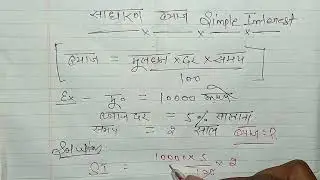 साधारण ब्याज Simple Interest
ब्याज = मूलधन × दर × समय
100
Ex - मू० = 10000 रूपये
ब्याज दर = 5% सालाना
समय = 2 साल ब्याज = ?
Solution
SI = 10000 × 5 × 2
100